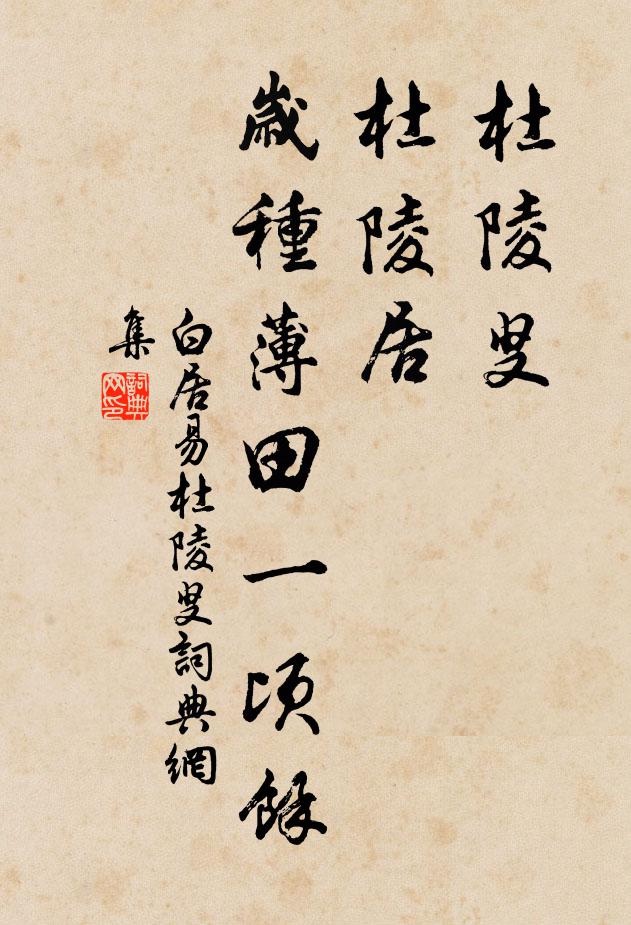 杜陵叟
杜陵居
歲種薄田一頃餘
白居易杜陵叟詞典網
集
詞典
网印